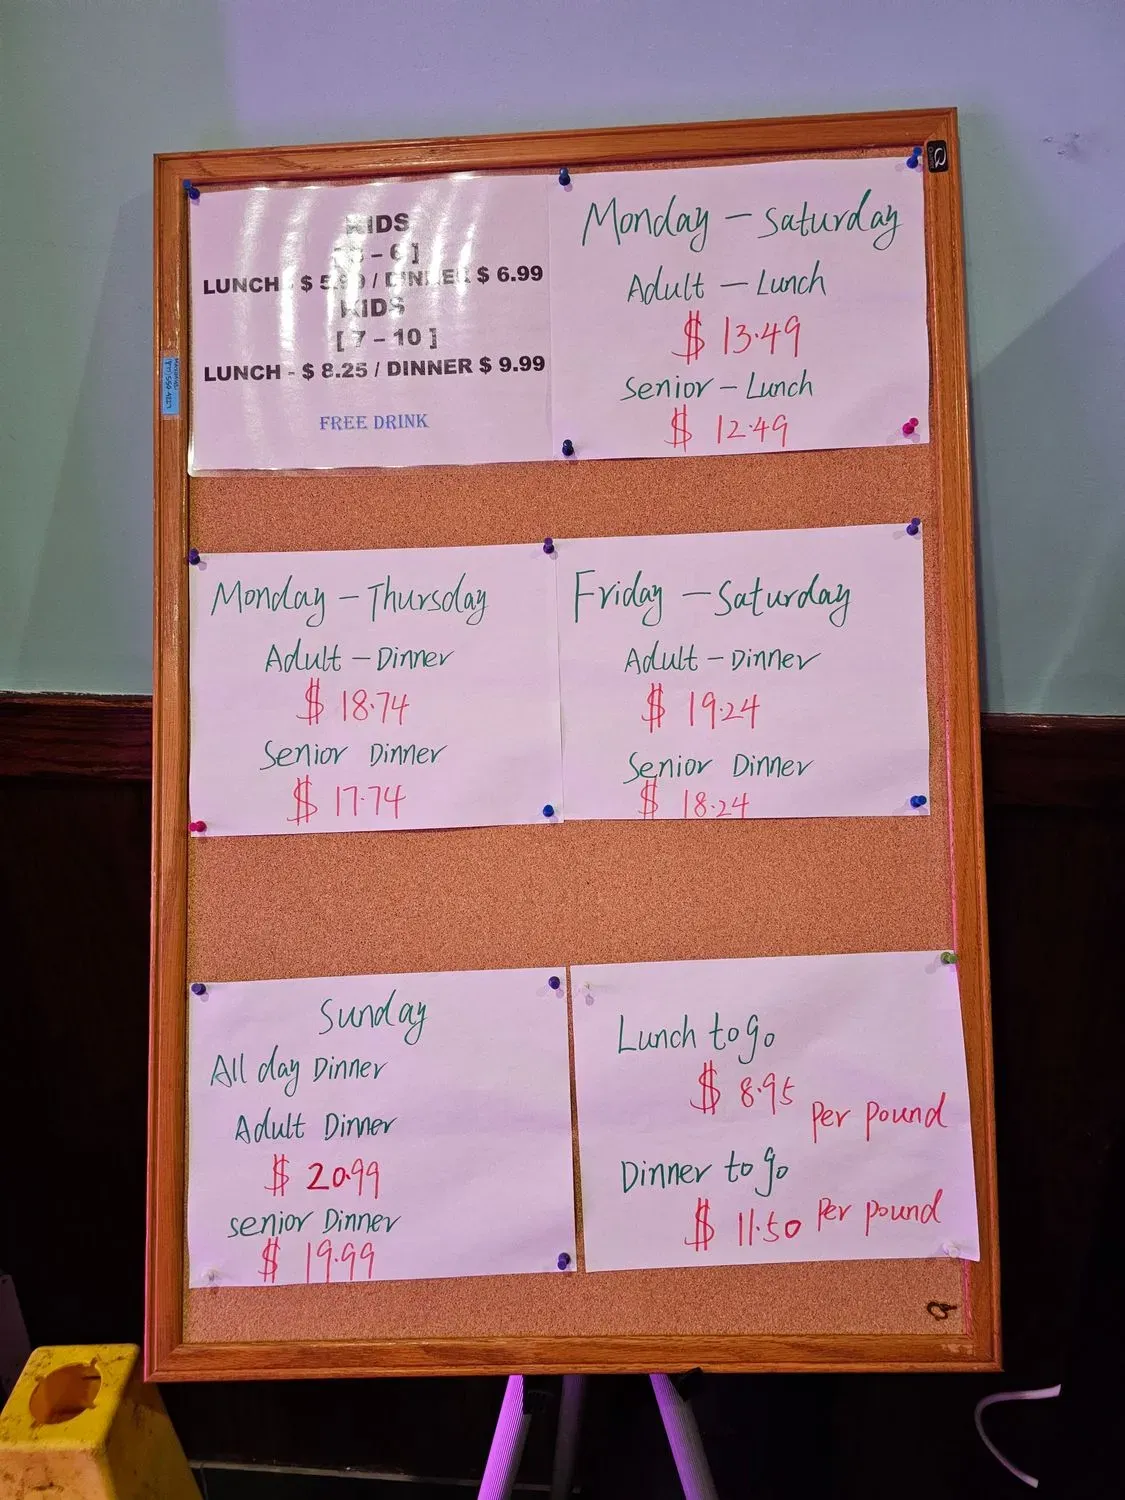 KIDS
– 6 ]
LUNCH - $ / DINNER $ 6.99
KIDS
[ 7 – 10 ]
LUNCH - $ 8.25 / DINNER $ 9.99
FREE DRINK
Monday – Saturday
Adult – Lunch
$ 13.49
Senior – Lunch
$ 12.49
Monday – Thursday
Adult – Dinner
$ 18.74
Senior Dinner
$ 17.74
Friday – Saturday
Adult – Dinner
$ 19.24
Senior Dinner
$ 18.24
Sunday
All day Dinner
Adult Dinner
$ 20.99
senior Dinner
$ 19.99
Lunch to go
$ 8.95 per pound
Dinner to go
$ 11.50 per pound